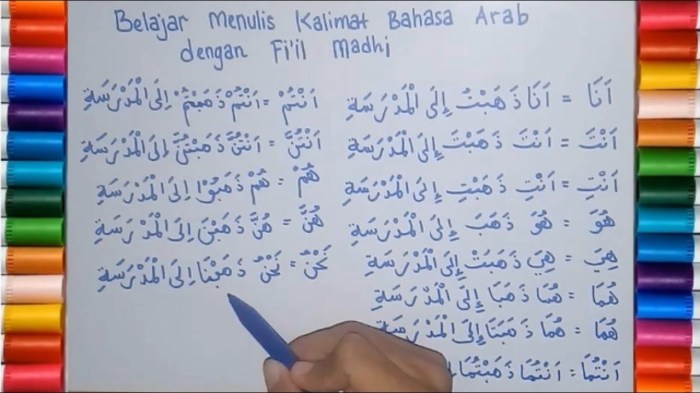 Belajar Menulis Kalimat Bahasa Arab
dengan Fi'il Madhi
اَنَا = اَنَا ذَهَبْتُ إِلَى الْمَدْرَسَةِ
اَنْتَ = اَنْتَ ذَهَبْتَ إِلَى الْمَدْرَسَةِ
اَنْتِ = اَنْتِ ذَهَبْتِ إِلَى الْمَدْرَسَةِ
هُوَ = هُوَ ذَهَبَ إِلَى الْمَدْرَسَةِ
هِيَ = هِيَ ذَهَبَتْ إِلَى الْمَدْرَسَةِ
هُمَا = هُمَا ذَهَبَا إِلَى الْمَدْرَسَةِ
هُمَا = هُمَا ذَهَبَتَا إِلَى الْمَدْرَسَةِ
اَنْتُمَا = اَنْتُمَا ذَهَبْتُمَا
اَنْتُمْ = اَنْتُمْ ذَهَبْتُمْ اِلَى الْمَدْرَسَةِ
اَنْتُنَّ = اَنْتُنَّ ذَهَبْتُنَّ اِلَى الْمَدْرَسَةِ
هُمْ = هُمْ ذَهَبُوْا اِلَى الْمَدْرَسَةِ
هُنَّ = هُنَّ ذَهَبْنَ اِلَى الْمَدْرَسَةِ
نَحْنُ = نَحْنُ ذَهَبْنَا اِلَى الْمَدْرَسَةِ